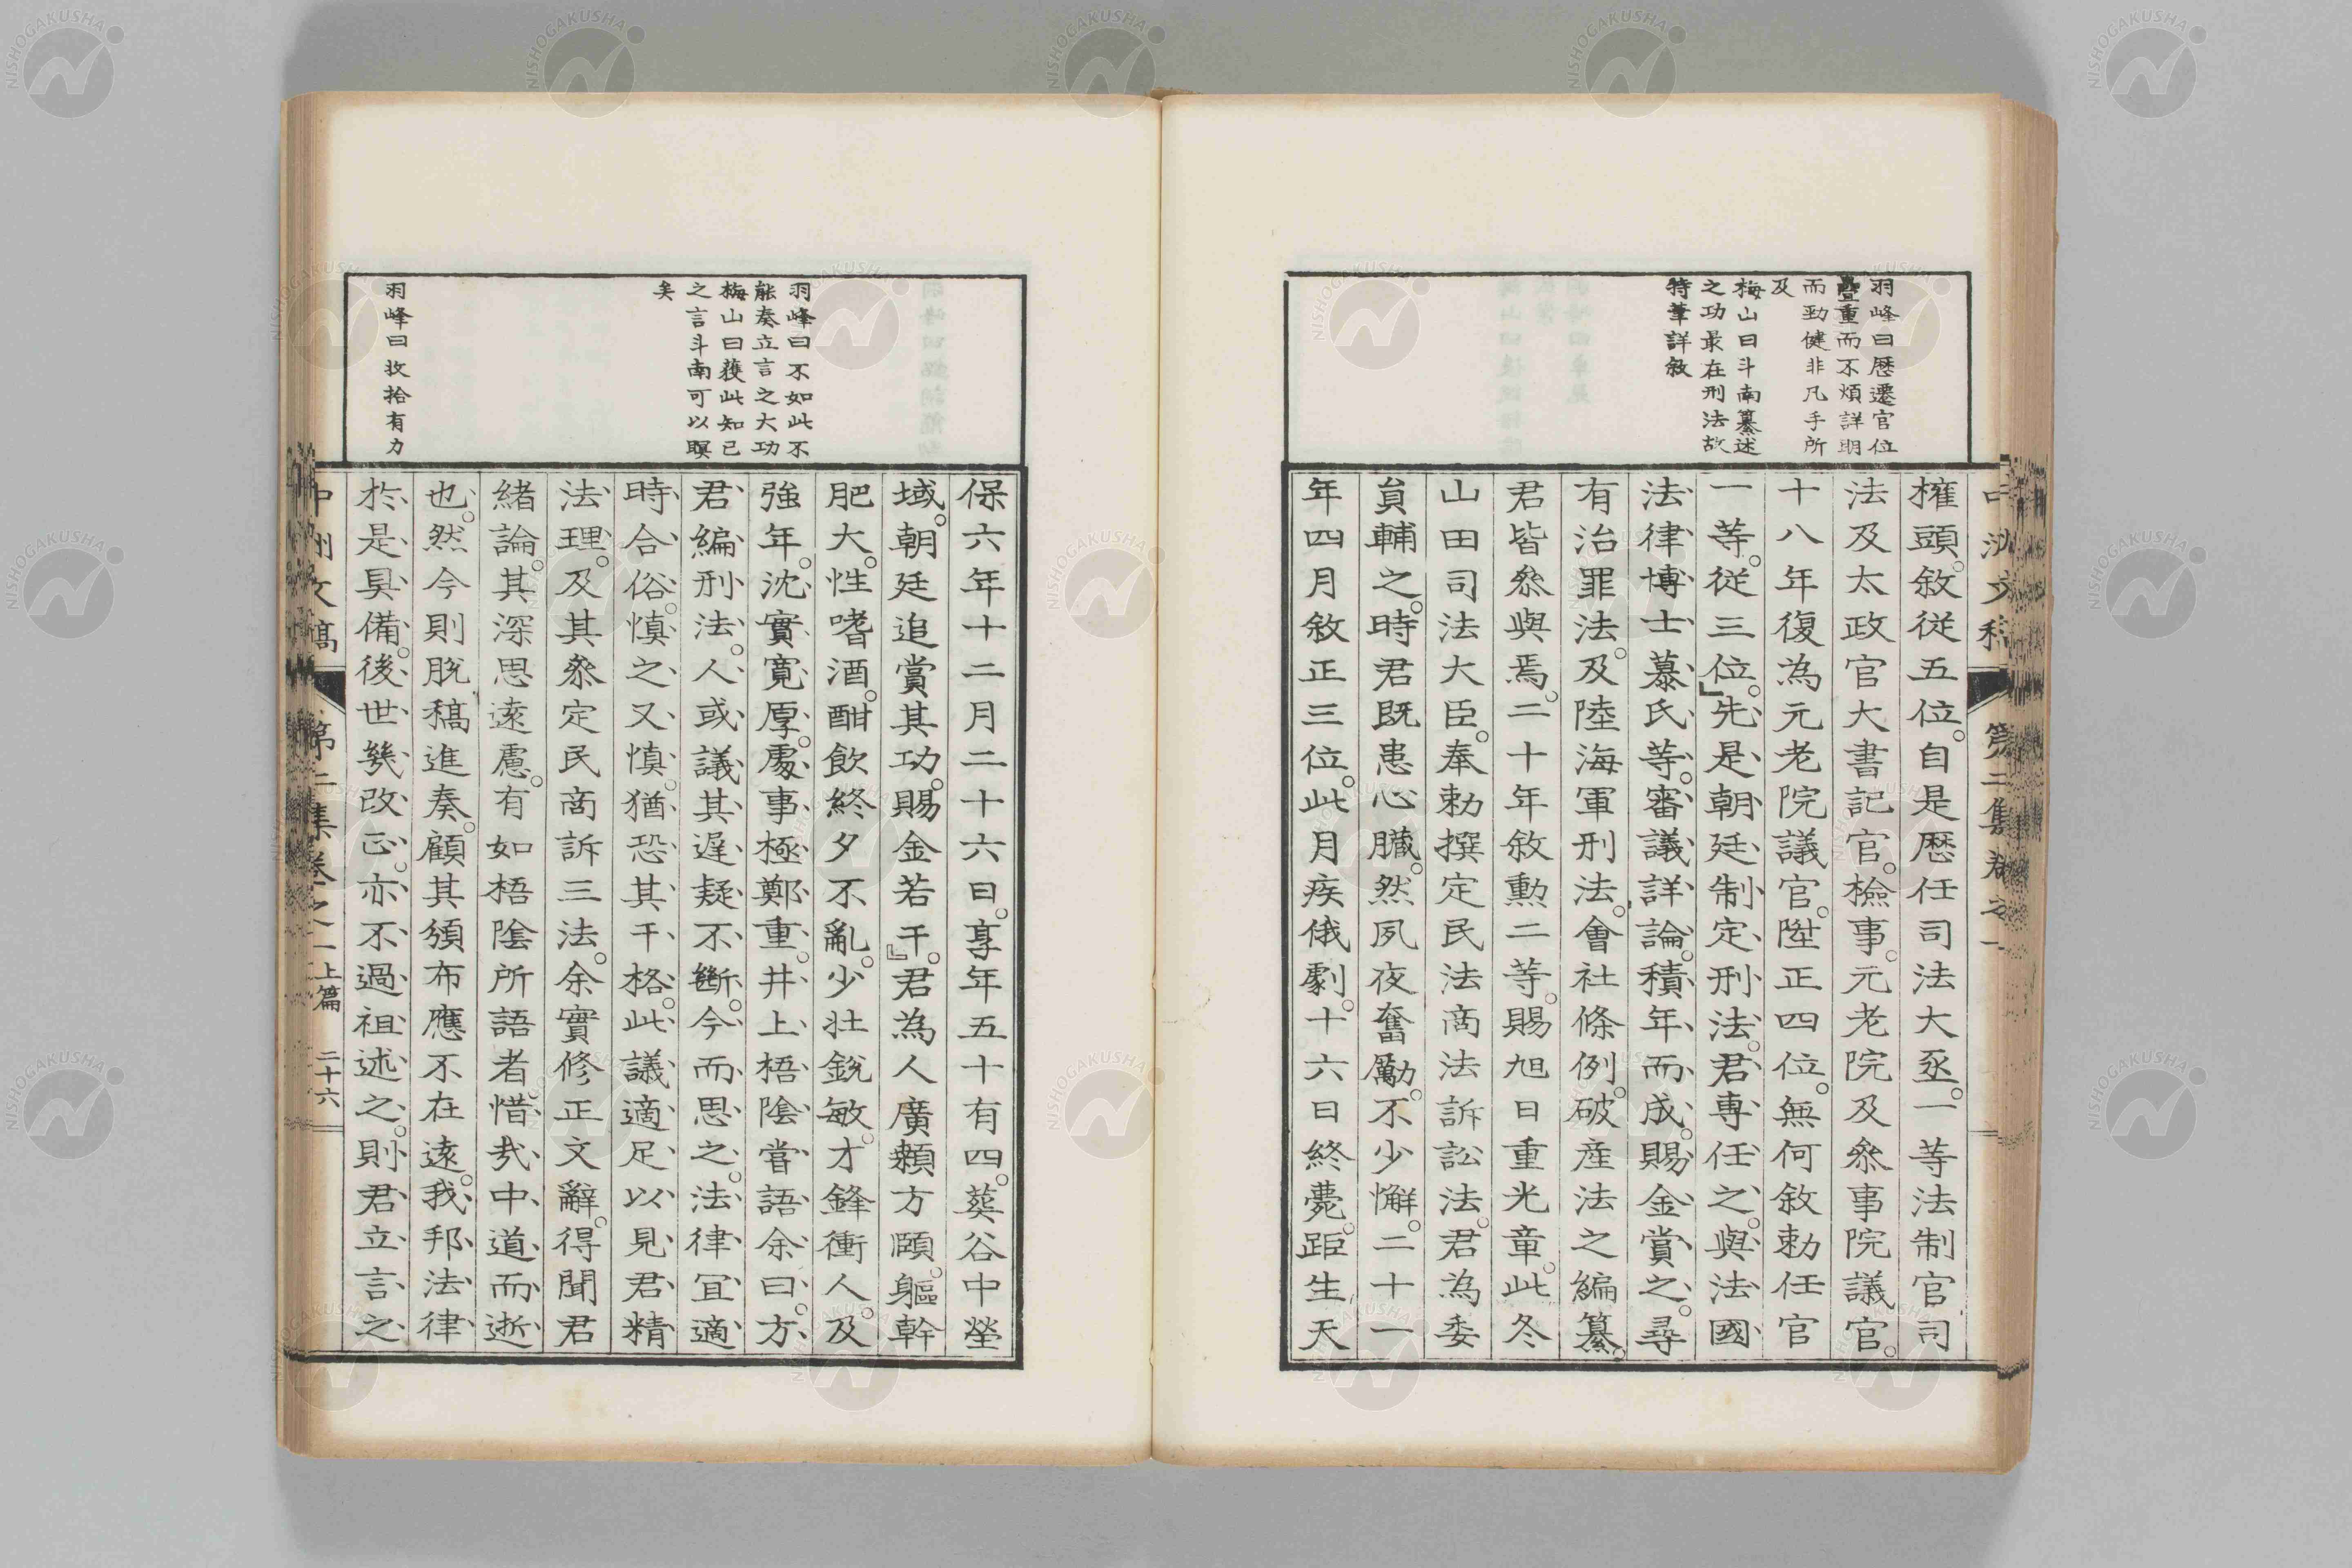 羽峰曰歴遷官位
疊重而不煩詳明
而勁健非凡手所
及
梅山曰斗南纂述
之功最在刑法故
特筆詳敘
擢頭。敘從五位。自是歴任司法大丞。一等法制官司
法及太政官大書記官。檢事。元老院及叅事院議官。
十八年復為元老院議官。陞正四位。無何敘勅任官
一等。從三位。』先是朝廷制定刑法。君專任之。與法國
法律博士慕氏等。審議詳論。積年而成。賜金賞之。尋
有治罪法。及陸海軍刑法。會社條例。破産法之編纂。
君皆叅與焉。二十年敘勲二等。賜旭日重光章。此冬
山田司法大臣。奉勅撰定民法商法訴訟法。君為委
員輔之。時君既患心臓。然夙夜奮勵。不少懈。二十一
年四月敘正三位。此月疾俄劇。十六日終薨。距生天
羽峰曰不如此不
能奏立言之大功
梅山曰獲此知己
之言斗南可以瞑
矣
羽峰曰收拾有力
保六年十二月二十六日。享年五十有四。葬谷中塋
域。朝廷追賞其功。賜金若干。』君為人廣顙方頤。軀幹
肥大。性嗜酒。酣飲終夕不亂。少壮銳敏。才鋒衝人。及
強年。沈實寬厚。處事極鄭重。井上梧陰嘗語余曰。方
君編刑法。人或議其遅疑不斷。今而思之。法律宜適
時合俗。慎之又慎。猶恐其干格。此議適足以見君精
法理。及其叅定民商訴三法。余實修正文辭。得聞君
緒論。其深思遠慮。有如梧陰所語者。惜哉中道而逝
也。然今則脱稿進奏。顧其頒布應不在遠。我邦法律
於是具備。後世幾改正。亦不過祖述之。則君立言之
中洲文稿
第二集卷之一上篇
二十六